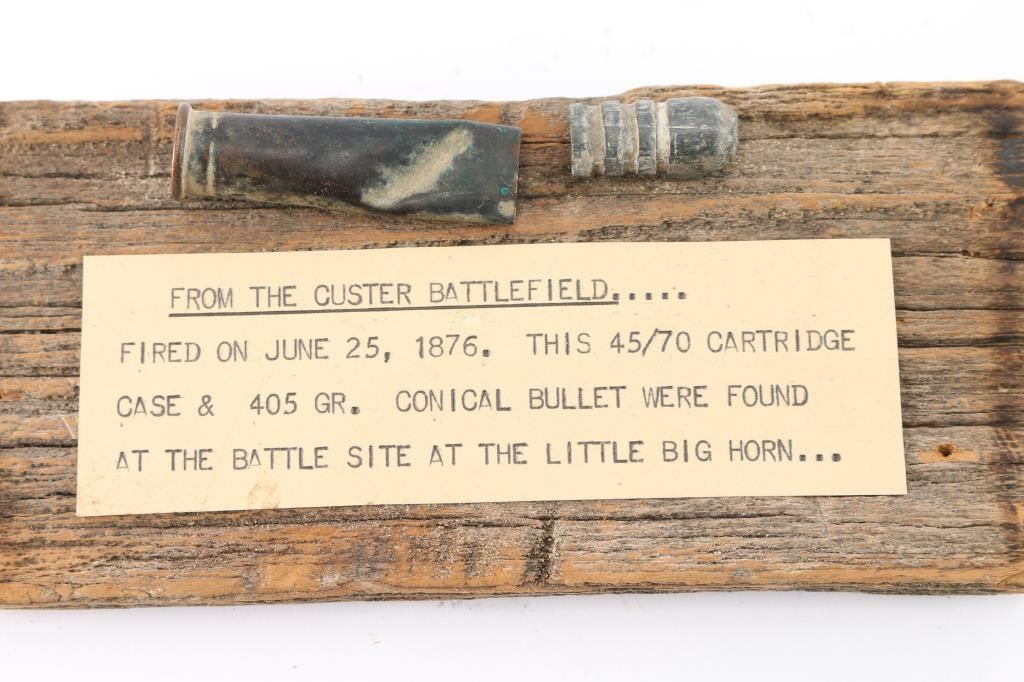 FROM THE CUSTER BATTLEFIELD.....
FIRED ON JUNE 25, 1876. THIS 45/70 CARTRIDGE
CASE & 405 GR. CONICAL BULLET WERE FOUND
AT THE BATTLE SITE AT THE LITTLE BIG HORN...